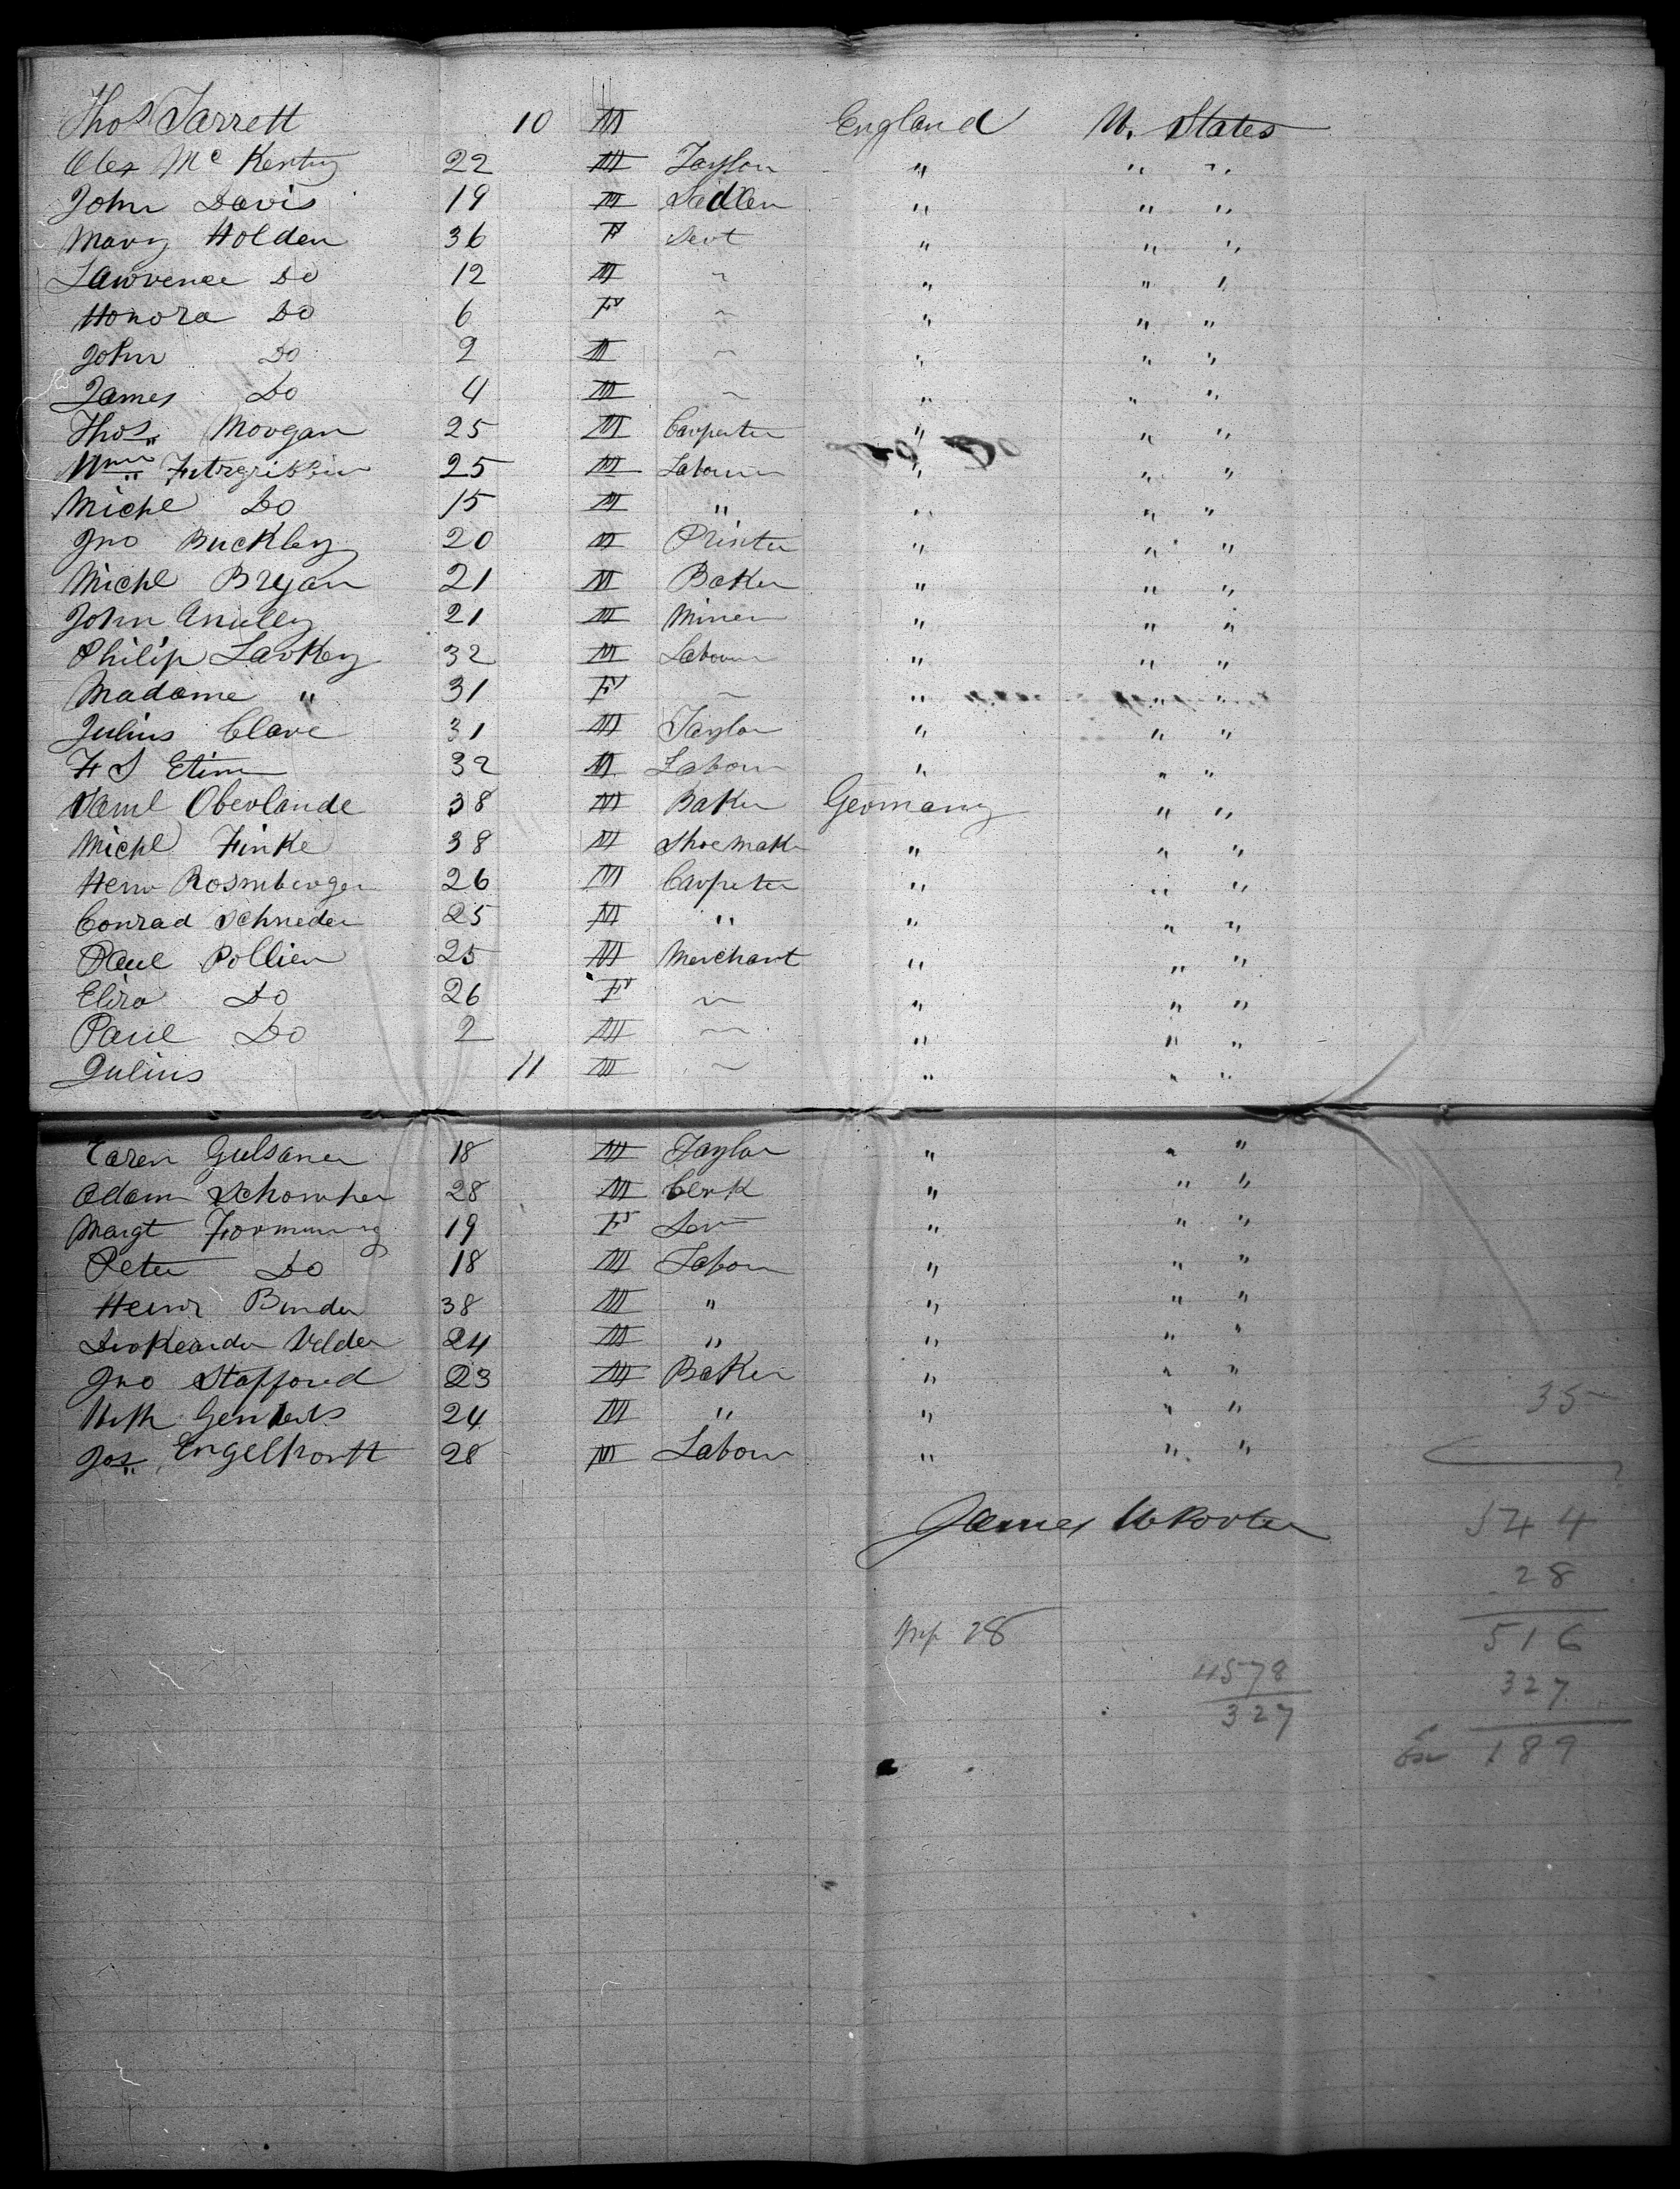 Thos Jarrett 10 M England U. States
Alex Mc Kertny 22 M Taylor " " "
John Davis 19 M Sadler " " "
Mary Holden 36 F Servt " " "
Lawrence Do 12 M ~ " " "
Honora Do 6 F ~ " " "
John Do 2 M ~ " " "
James Do 4 M ~ " " "
Thos Morgan 25 M Carpenter " " "
Wm 25 M Labourer " " "
Michl Do 15 M " " " "
Jno Buckley 20 M Printer " " "
Michl Bryan 21 M Baker " " "
John 21 M Miner " " "
Philip Larkey 32 M Labourer " " "
Madame " 31 F ~ " " "
Julius Clave 31 M Taylor " " "
F S Etim 32 M Labour " " "
Saml Oberlande 38 M Baker Germany " "
Michl Finke 38 M Shoemaker " " "
Henr Rosmberger 26 M Carpeter " " "
Conrad Schneder 25 M " " " "
Paul Pollien 25 M Merchant " " "
Eliza Do 26 F ~ " " "
Paul Do 2 M ~ " " "
Julius 11 M ~ " " "
Caren Gulsaner 18 M Taylor " " "
Adam 28 M Clerk " " "
Margt 19 F Ser " " "
Peter Do 18 M Labour " " "
Heinr Binder 38 M " " " "
Velder 24 M " " " "
Jno Stafford 23 M Baker " " "
24 M " " " "
Jos Engelhortt 28 M Labour " " "
35
James W Porter
544
28
28
516
4578
327
327
189